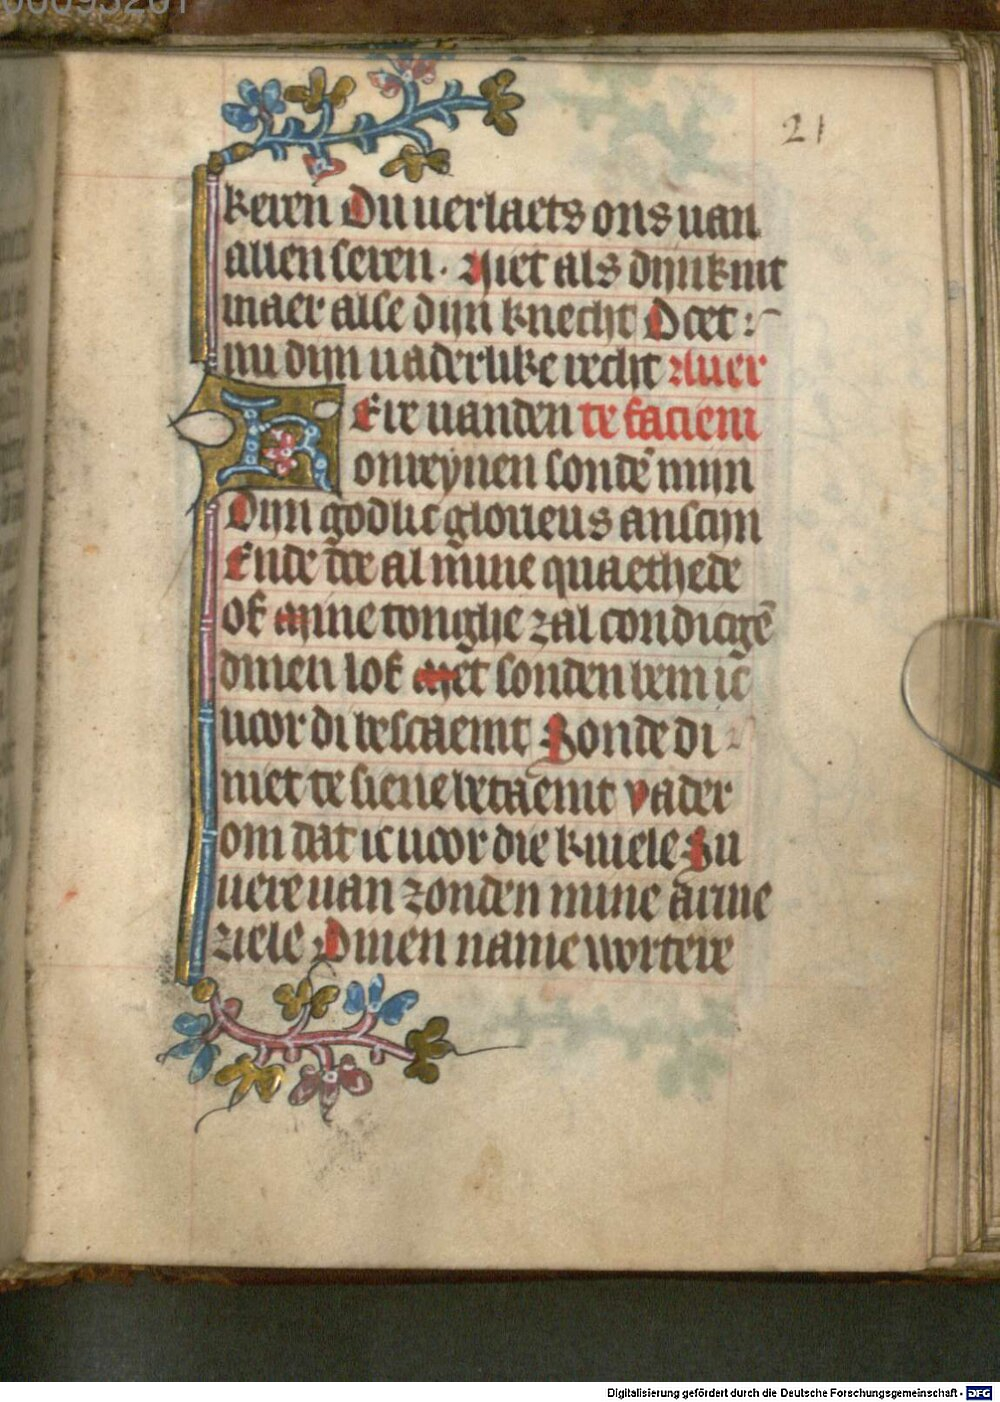 21
keren Du uerlaets ons uan
allen seren. Niet als dijn knit
maer alse dijn knecht Doet:
nu dijn uaderlike recht Auer
KEre uanden te faciem
onreynen sonde mijn
Dijn godlic glorieus anscijn
Ende al mine quaethede
of mine tonghe zal condigē
dinen lof Met sonden bem ic
uoor di bescaemt Sonde di
niet te siene betaemt Vader
om dat ic uoor die kniele Su
uere uan zonden mine arme
ziele Dinen name wortere
Digitalisierung gefördert durch die Deutsche Forschungsgemeinschaft - DFG